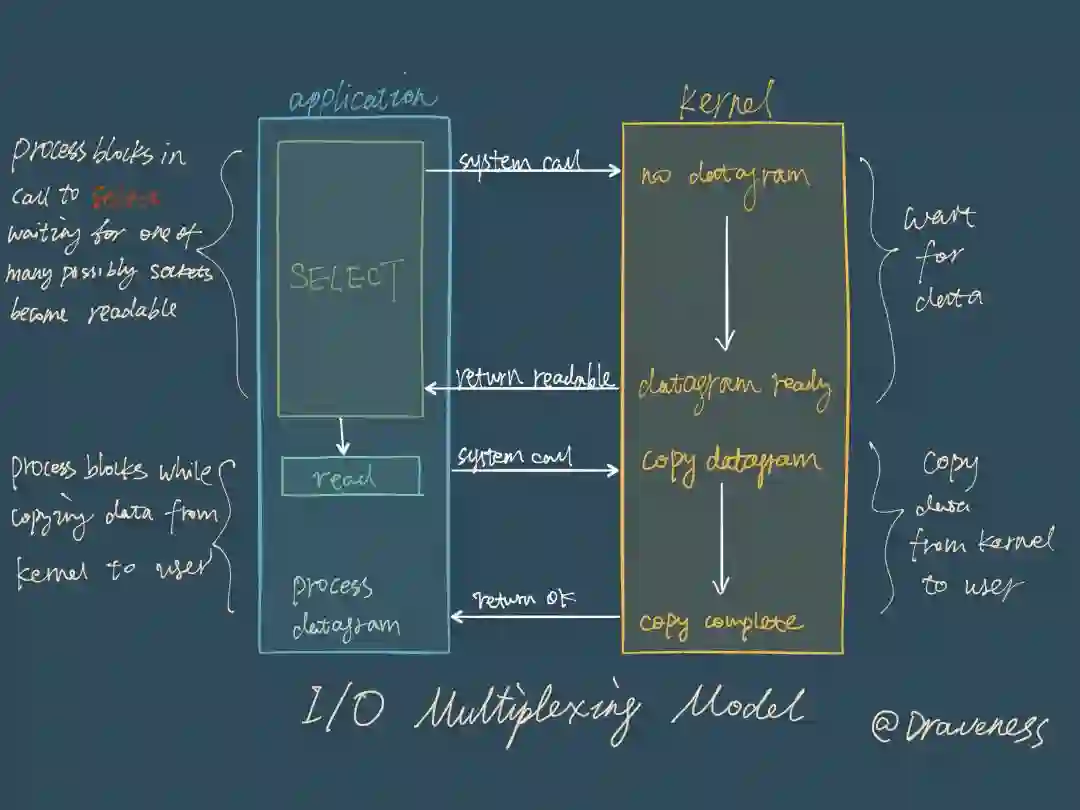 application
kernel
process blocks in
call to select
waiting for one of
many possibly sockets
become readable
SELECT
system call
no datagram
wait
for
data
return readable
datagram ready
process blocks while
copying data from
kernel to user
read
system call
copy datagram
copy
data
from kernel
to user
process
datagram
return ok
copy complete
I/O Multiplexing Model
@Draveness